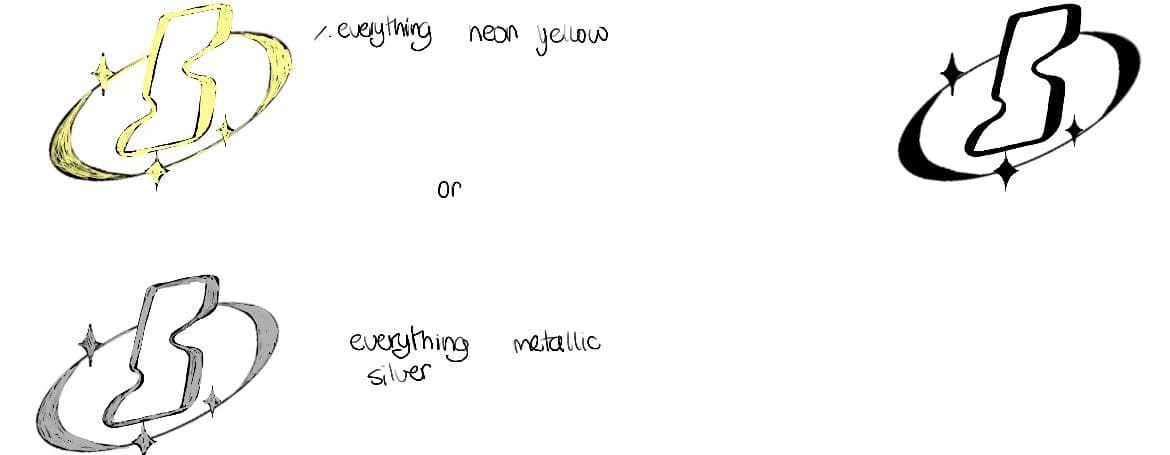 1. everything neon yellow
or
everything metallic
silver